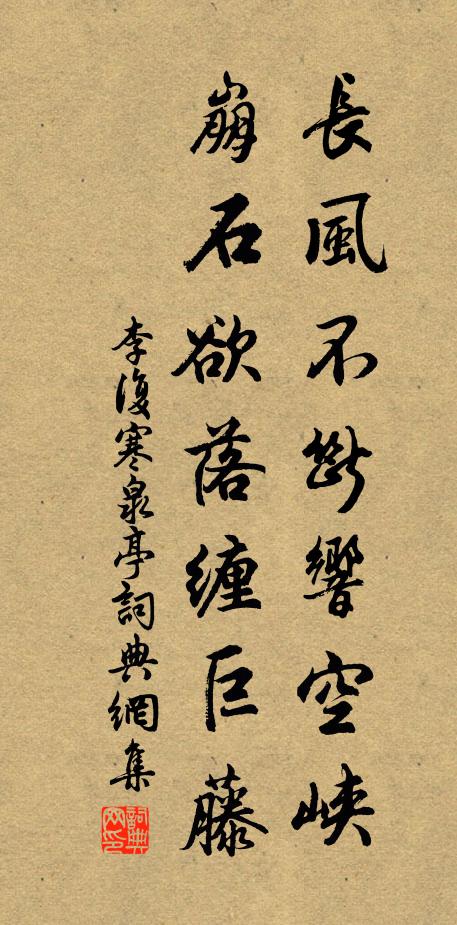 長風不斷響空峽
崩石欲落纏巨藤
李復寒泉亭詞典網集
詞典网印